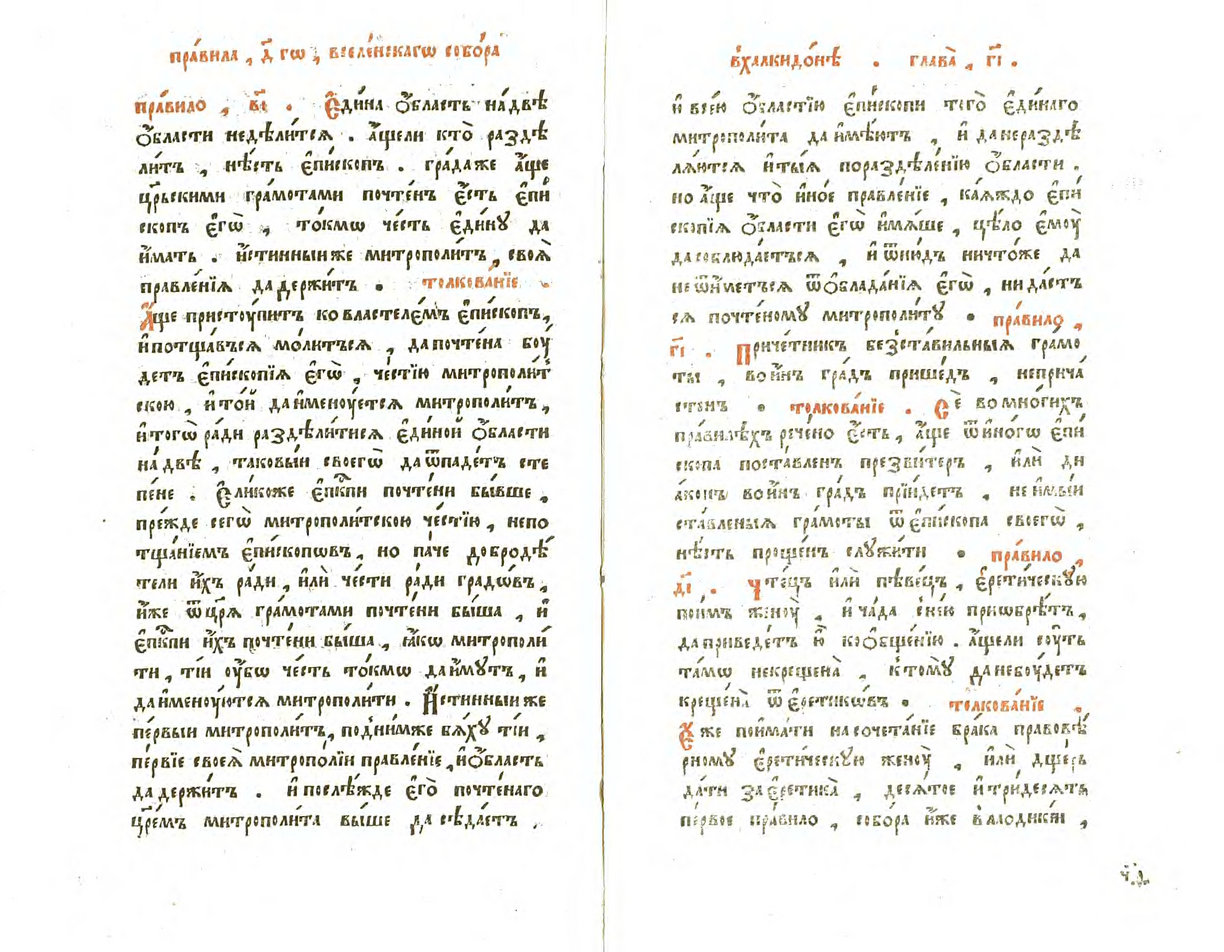 пра́вила , д҃ гѡ , вселе́нскагѡ собо́ра
пра́вило , в҃і . Є҆ди́на ѻ҆́бласть на́двѣ
ѻ҆́бласти недѣли́тсѧ . а҆́щели кто̀ раздѣ
ли́тъ , нѣ́сть є҆пи́скопъ . гра́даже а҆́ще
цр҃ьскими гра́мотами почте́нъ є҆́сть є҆пи́
скопъ є҆гѡ̀ , то́кмѡ че́сть є҆ди́нꙋ да
и҆́мать . и҆́стинныиже митрополи́тъ , своѧ̀
правле́нїѧ дадержи́тъ . толкова́нїе
А҆́ще присто́упитъ ковластеле́мъ є҆пи́скопъ,
и҆потща́въсѧ мо́литъсѧ , дапочте́на боу́
детъ є҆писко́пїѧ є҆гѡ̀ , че́стїю митрополи́т
скою , и҆то́й даименоу́етсѧ митрополи́тъ ,
и҆тогѡ̀ ра́ди раздѣли́тисѧ є҆ди́ной ѻ҆́бласти
на́двѣ , таковы́и своегѡ̀ даѿпаде́тъ сте
пе́не . Є҆ли́коже є҆пⷭ҇кпи почте́ни бы́вше ,
пре́жде сегѡ̀ митрополи́тскою че́стїю , непо
тща́нїемъ є҆пи́скопѡвъ , но па́че доброде́
тели и҆́хъ ра́ди , и҆лѝ че́сти ра́ди градѡ́въ ,
и҆́же ѿцр҃ѧ̀ гра́мотами почте́ни бы́ша , и҆
є҆пⷭ҇кпи и҆́хъ почте́ни бы́ша , ꙗ҆́кѡ митрополи́
ти , ті́и оу҆́бѡ че́сть то́кмѡ даи҆́мꙋтъ , и҆
даименоу́ютсѧ митрополи́ти . И҆́стинныиже
пе́рвыи митрополи́тъ , подни́мже бѧ́хꙋ ті́и ,
пе́рвїе своеѧ̀ митропо́лїи правле́нїе , и҆ѻ҆́бласть
дадержи́тъ . и҆послѣ́жде є҆го̀ почте́наго
цр҃е́мъ митрополи́та вы́ше да сѣда́етъ .
вхалкидо́нѣ . глава̀ , г҃і .
и҆ все́ю ѻ҆́бластїю є҆пи́скопи того̀ є҆ди́наго
митрополи́та даи҆мѣ́ютъ , и҆ данераздѣ
лѧ́ютсѧ и҆ты́ѧ пораздѣле́нїю ѻ҆́бласти .
но а҆́ще что̀ и҆но́е правле́нїе , каѧ́ждо є҆пи
ско́пїѧ ѻ҆́бласти є҆гѡ̀ и҆мѧ́ше , цѣ́ло є҆моу̀
дасоблюда́етьсѧ , и҆ ѿню́дъ ничто́же да
не ѿи҆́метьсѧ ѿѡблада́нїѧ є҆гѡ̀ , ни да́стъ
сѧ почте́номꙋ митрополи́тꙋ . пра́вило ,
г҃і . Приче́тникъ безста́вильныѧ гра́мо
ты , во и҆́нъ гра́дъ прише́дъ , неприча́
стенъ . толкова́нїе . Се́ вомно́гихъ
пра́вилѣхъ рече́но є҆́сть , а҆́ще ѿи҆но́гѡ є҆пи́
скопа поста́вленъ презви́теръ , и҆лѝ ди
а́конъ во и҆́нъ гра́дъ прїи́детъ , не и҆мы́и
ста́вленыѧ гра́моты ѿ є҆пи́скопа своегѡ̀ ,
нѣ́сть проще́нъ слꙋжи́ти . пра́вило ,
д҃і . Чте́цъ и҆лѝ пѣве́цъ , є҆рети́ческꙋю
пои́мъ женоу̀ , и҆ ча́да с не́ю приѡбрѣ́тъ ,
даприведе́тъ ю҆̀ коѻ҆бще́нїю . а҆́щели соу́ть
та́мѡ некреще́на , ктомꙋ̀ данебоу́детъ
креще́на ѿ є҆ретикѡ́въ . толкова́нїе .
Є҆́же пои҆ма́ти насочета́нїе бра́ка правовѣ́
рномꙋ є҆рети́ческꙋю женоу̀ , и҆лѝ дще́рь
да́ти заєретика̀ , десѧ́тое и҆тридесѧ́ть
пе́рвое пра́вило , собо́ра и҆́же влаодикі́и ,